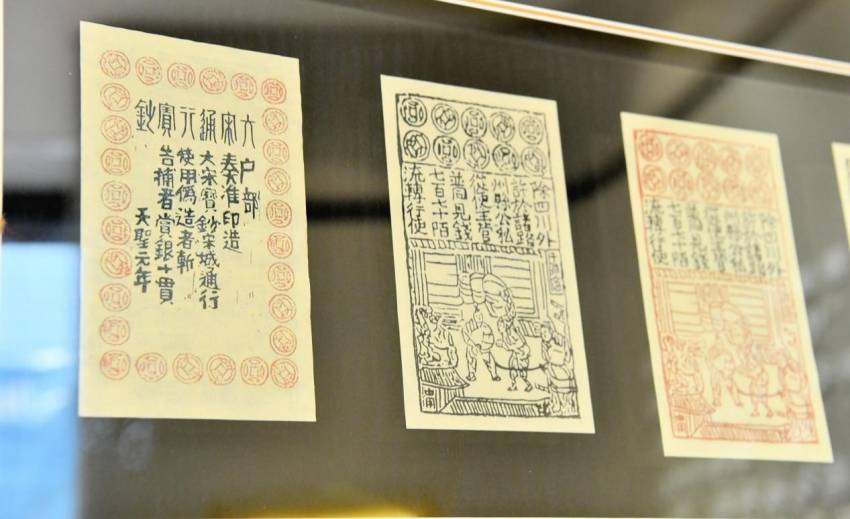 大宋通行寶鈔
户部
奏准印造
大宋寶鈔宋城通行
使用偽造者斬
告捕者賞銀十貫
天聖元年
除四川外
許於諸路
州縣公私
從便主管
並同見錢
七百七十陌
流轉行使
除四川外
許於諸路
州縣公私
從便主管
並同見錢
七百七十陌
流轉行使